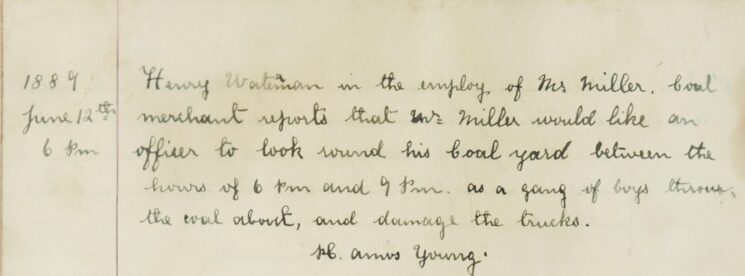 1889 Henry Wateman in the employ of Mr Miller. Coal
June 12th merchant reports that Mr Miller would like an
6 Pm officer to look round his Coal yard between the
hours of 6 Pm and 9 Pm. as a gang of boys throw,
the coal about, and damage the trucks.
Amos Young.